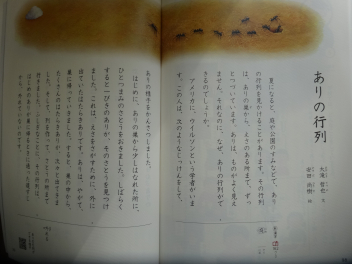 ありの行列
大滝 哲也 文
夏になると、庭や公園のすみなどで、あり
の行列を見かけることがあります。その行列
は、ありの巣から、えさのある所まで、ずっ
とつづいています。ありは、ものがよく見え
ません。それなのに、なぜ、ありの行列がで
きるのでしょうか。
アメリカに、ウイルソンという学者がいま
す。この人は、次のようなじっけんをして、
ありの様子をかんさつしました。
はじめに、ありの巣から少しはなれた所に、
ひとつまみのさとうをおきました。しばらく
すると、一ぴきのありが、そのさとうを見つけ
ました。これは、えさをさがすために、外に
出ていたはたらきありです。ありは、やがて、
巣に帰っていきました。すると、巣の中から、
たくさんのはたらきありが、次々と出てきま
した。そして、列を作って、さとうの所まで
行きました。ふしぎなことに、その行列は、
はじめのありが巣に帰るときに通った道すじ
から、外れていないのです。